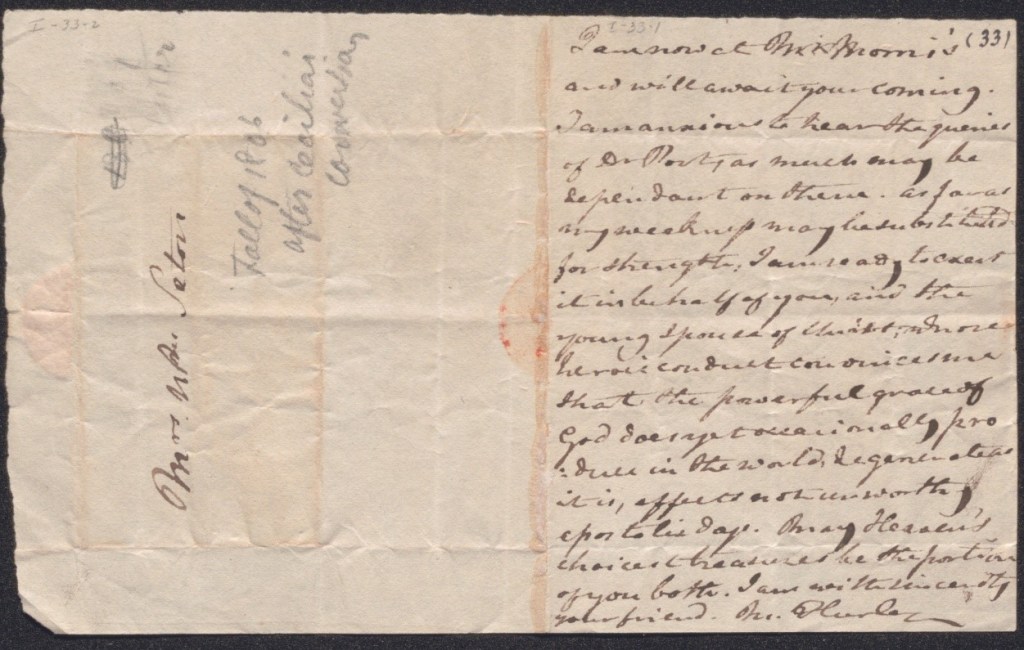 I-33-2
Fall of 1806
after Cecilia's
conversion
Mrs. Wm. Seton
I-33-1
(33)
I am now at Mrs Morris's
and will await your coming.
I am anxious to hear the queries
of Dr Post, as much may be
dependant on them. as far as
my weakness may be substituted
for strength, I am ready to exert
it in behalf of you, and the
young spouse of Christ, whose
heroic conduct convinces me
that the powerful grace of
God does yet occasionally pro
:duce in the world, degenerate as
it is, effects not unworthy
apostolic days. May Heaven's
choicest treasures be the portion
of you both. I am with sincerity
your friend. M. Hurley